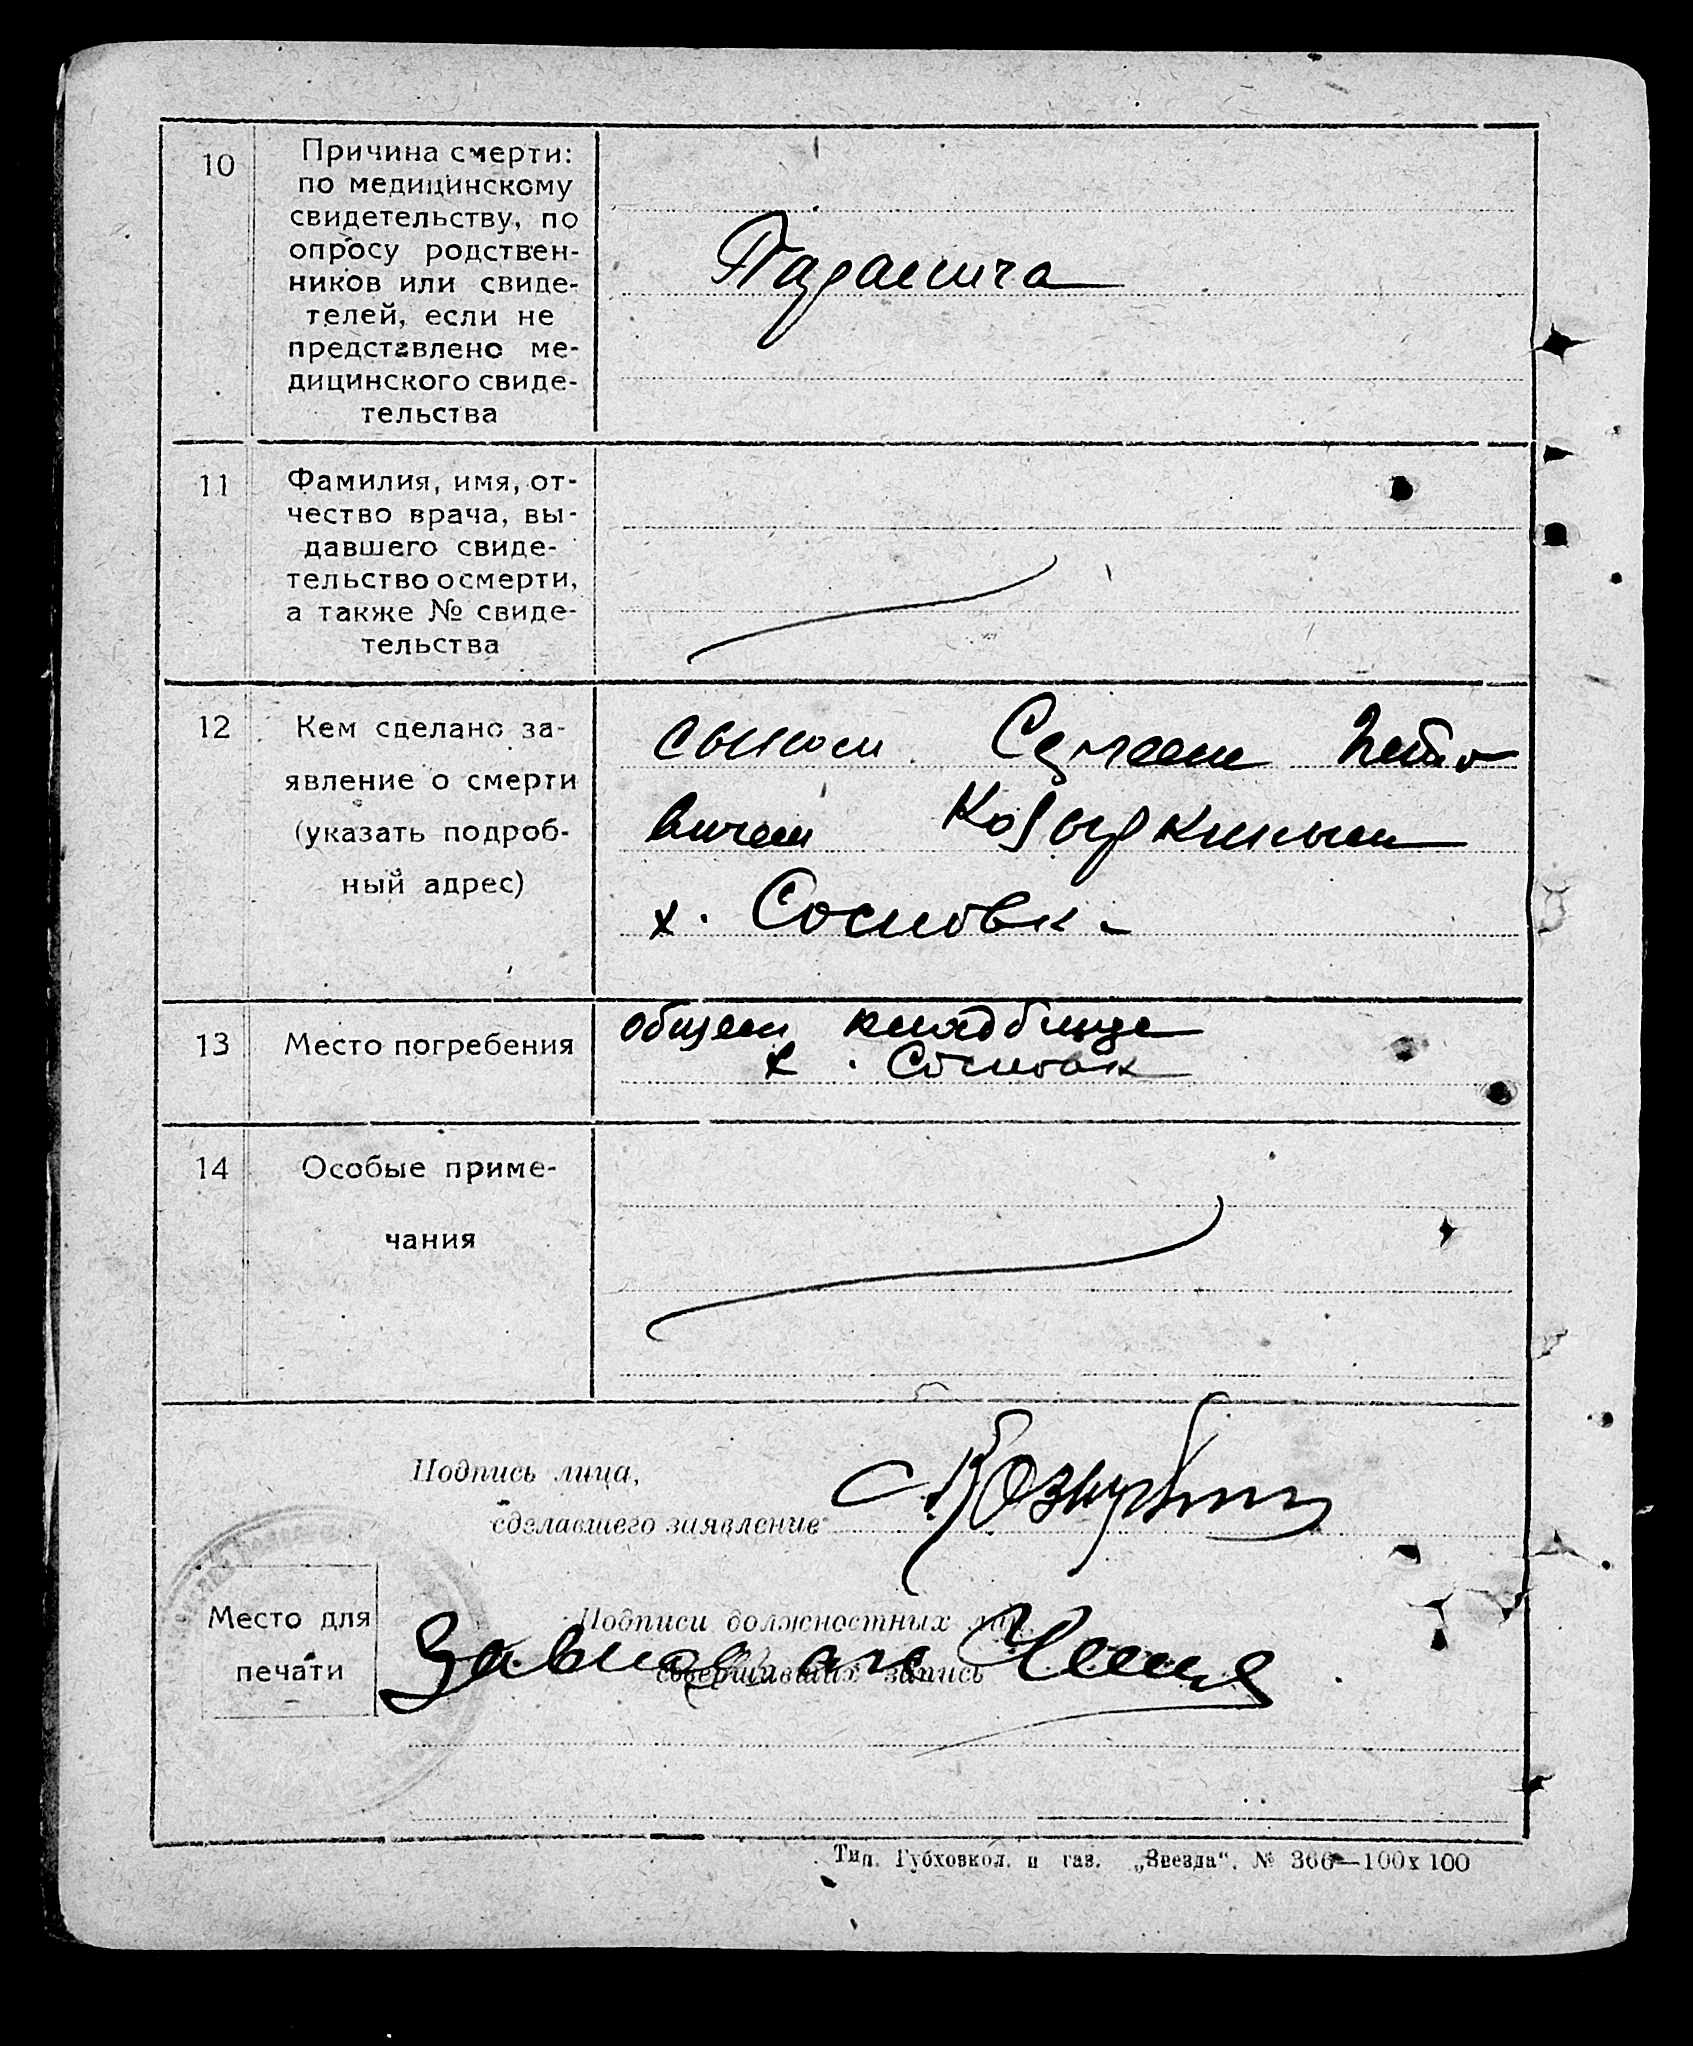 10
Причина смерти:
по медицинскому
свидетельству, по
опросу родствен-
ников или свиде-
телей, если не
представлено ме-
дицинского свиде-
тельства
11
Фамилия, имя, от-
чество врача, вы-
давшего свиде-
тельство о смерти,
а также № свиде-
тельства
12
Кем сделано за-
явление о смерти
(указать подроб-
ный адрес)
сыном Петро
вичем Козыркиным
х. Сосновк
13
Место погребения
общем кладбище
х. Сосновк
14
Особые приме-
чания
Подпись лица,
сделавшего заявление
С Козыркин
Место для
печати
Подписи должностных лиц,
совершивших запись
Тип. Губховкол. и газ. „Звезда“. № 366—100x100